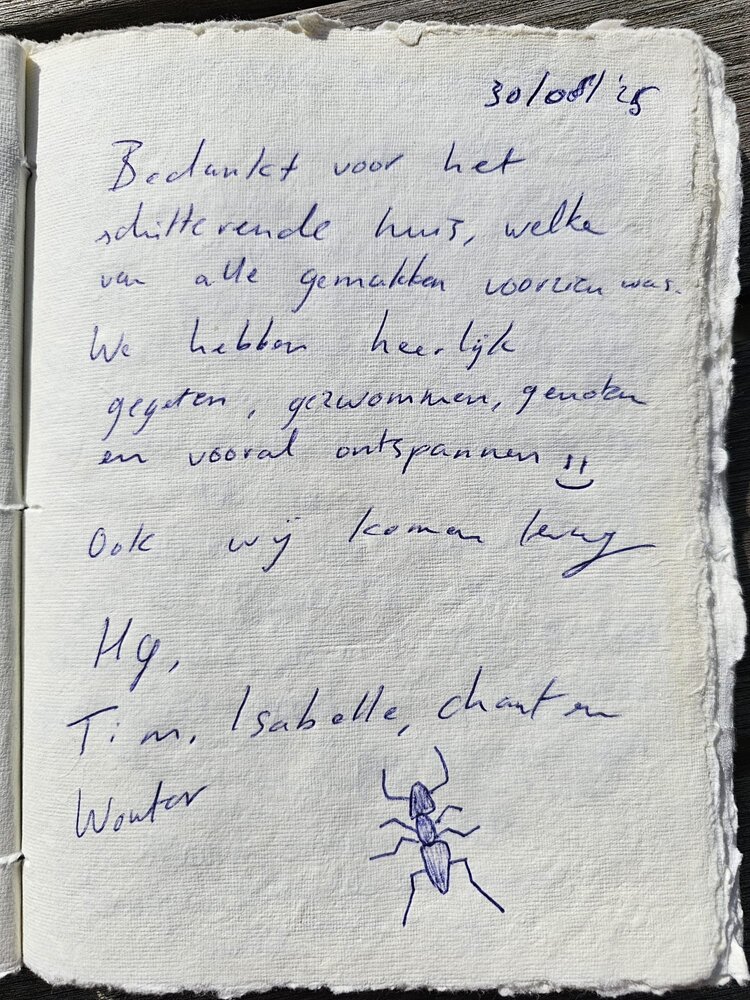 30/08/'25
Bedankt voor het
schitterende huis, welke
van alle gemakken voorzien was.
We hebben heerlijk
gegeten, gezwommen, genoten
en vooral ontspannen
Ook wij komen terug
Hg,
Tim, Isabelle, en
Wouter